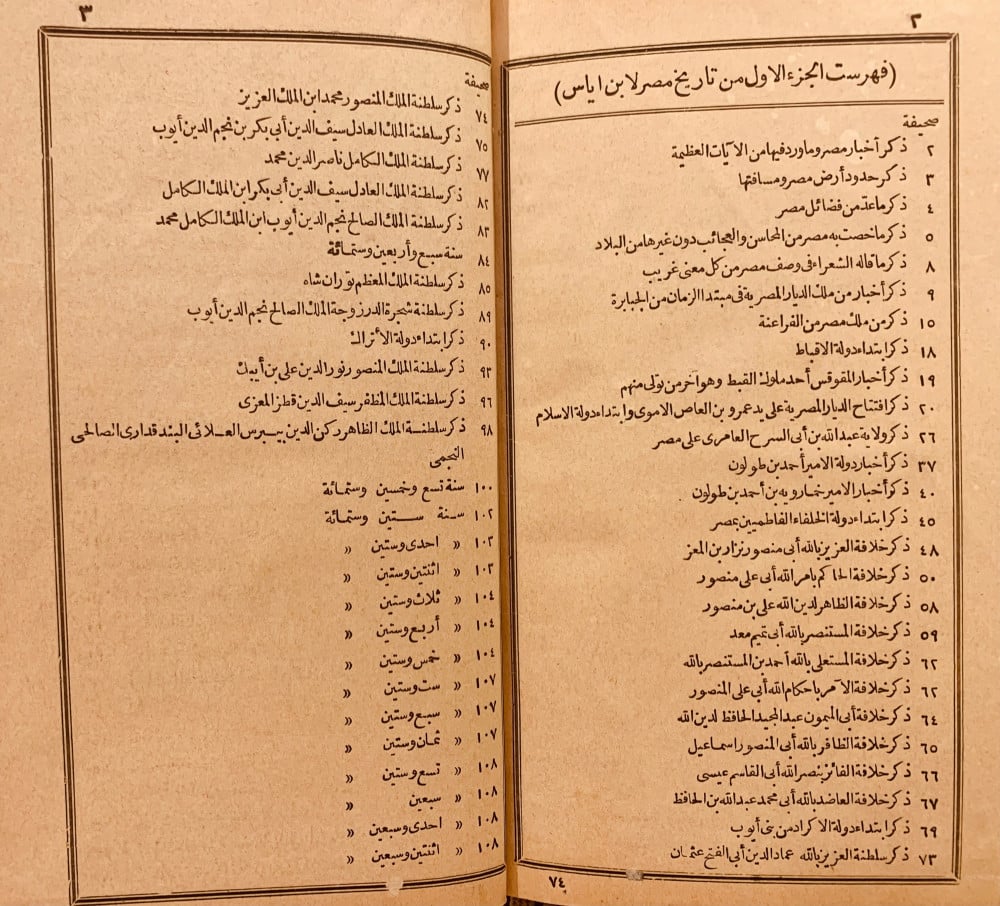 ٢
(فهرست الجزء الاول من تاريخ مصر لابن اياس)
صحيفة
٢ ذكر أخبار مصر وما ورد فيها من الآيات العظيمة
٣ ذكر حدود أرض مصر ومسافتها
٤ ذكر ما عدّ من فضائل مصر
٥ ذكر ما خصت به مصر من المحاسن والعجائب دون غيرها من البلاد
٨ ذكر ما قاله الشعراء فى وصف مصر من كل معنى غريب
٩ ذكر أخبار من ملك الديار المصرية فى مبتدا الزمان من الجبابرة
١٥ ذكر من ملك مصر من الفراعنة
١٨ ذكر ابتداء دولة الاقباط
١٩ ذكر أخبار المقوقس أحد ملوك القبط وهو آخر من تولى منهم
٢٠ ذكر افتتاح الديار المصرية على يد عمرو بن العاص الاموى وابتداء دولة الاسلام
٢٦ ذكر ولاية عبد الله بن أبى السرح العامرى على مصر
٣٧ ذكر أخبار دولة الامير أحمد بن طولون
٤٠ ذكر أخبار الامير خمارويه بن أحمد بن طولون
٤٥ ذكر ابتداء دولة الخلفاء الفاطميين بمصر
٤٨ ذكر خلافة العزيز بالله أبى منصور نزار بن المعز
٥٠ ذكر خلافة الحاكم بامر الله أبى على منصور
٥٨ ذكر خلافة الظاهر لدين الله على بن منصور
٥٩ ذكر خلافة المستنصر بالله أبى تميم معد
٦٢ ذكر خلافة المستعلى بالله أحمد بن المستنصر بالله
٦٢ ذكر خلافة الآمر باحكام الله أبى على المنصور
٦٤ ذكر خلافة أبى الميمون عبد المجيد الحافظ لدين الله
٦٥ ذكر خلافة الظافر بالله أبى المنصور اسماعيل
٦٦ ذكر خلافة الفائز بنصر الله أبى القاسم عيسى
٦٧ ذكر خلافة العاضد بالله أبى محمد عبد الله بن الحافظ
٦٩ ذكر ابتداء دولة الاكراد من بنى أيوب
٧٣ ذكر سلطنة العزيز بالله عماد الدين أبى الفتح عثمان
٧٤
٣
صحيفة
٧٤ ذكر سلطنة الملك المنصور محمد ابن الملك العزيز
٧٥ ذكر سلطنة الملك العادل سيف الدين أبى بكر بن نجم الدين أيوب
٧٧ ذكر سلطنة الملك الكامل ناصر الدين محمد
٨٢ ذكر سلطنة الملك العادل سيف الدين أبى بكر ابن الملك الكامل
٨٣ ذكر سلطنة الملك الصالح نجم الدين أيوب ابن الملك الكامل محمد
٨٤ سنة سبع وأربعين وستمائة
٨٥ ذكر سلطنة الملك المعظم توران شاه
٨٩ ذكر سلطنة شجرة الدر زوجة الملك الصالح نجم الدين أيوب
٩٠ ذكر ابتداء دولة الأتراك
٩٣ ذكر سلطنة الملك المنصور نور الدين على بن أيبك
٩٦ ذكر سلطنة الملك المظفر سيف الدين قطز المعزى
٩٨ ذكر سلطنة الملك الظاهر ركن الدين بيبرس العلائى البندقدارى الصالحى
النجمى
١٠٠ سنة تسع وخمسين وستمائة
١٠٢ سنة ستين وستمائة
١٠٢ » احدى وستين »
١٠٣ » اثنتين وستين »
١٠٤ » ثلاث وستين »
١٠٤ » أربع وستين »
١٠٤ » خمس وستين »
١٠٧ » ست وستين »
١٠٧ » سبع وستين »
١٠٧ » ثمان وستين »
١٠٨ » تسع وستين »
١٠٨ » سبعين »
١٠٨ » احدى وسبعين »
١٠٨ » اثنتين وسبعين »